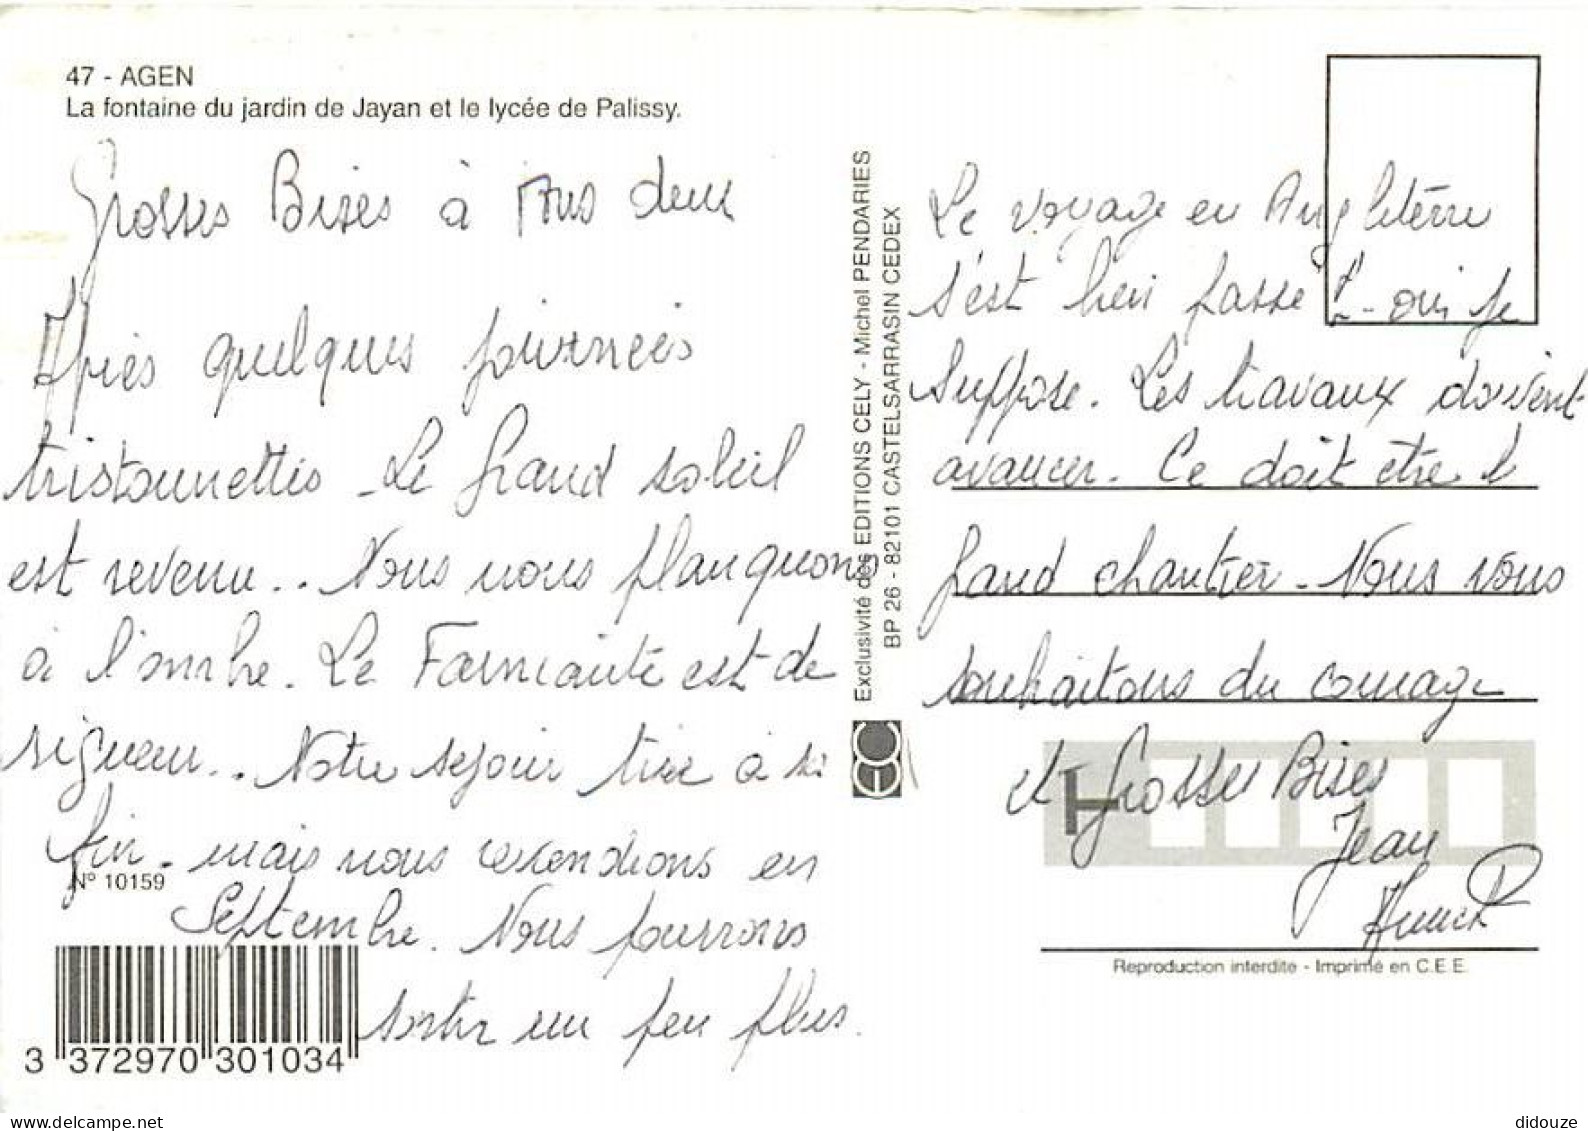 47 - AGEN
La fontaine du jardin de Jayan et le lycée de Palissy.
Grosses Bises à tous deux
Après quelques journées
tristounettes - Le grand soleil
est revenu.. Nous nous planquons
à l'ombre. Le Farniante est de
rigueur.. Notre séjour tire à sa
fin - mais nous reviendrons en
Septembre. Nous pourrons
sortir un peu plus.
N° 10159
3 372970 301034
Exclusivité des EDITIONS CELY - Michel PENDARIES
BP 26 - 82101 CASTELSARRASIN CEDEX
Le voyage en Angleterre
s'est bien passé - oui je
suppose. Les travaux doivent
avancer. Ce doit être le
grand chantier - Nous vous
souhaitons du courage
et Grosses Bises
Jean
Reproduction interdite - Imprimé en C.E.E.
didouze